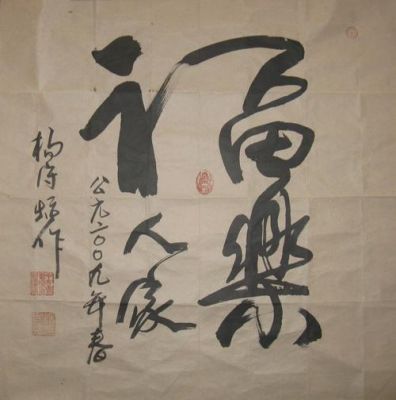 福樂
人家
公元二〇〇九年春
杨 作